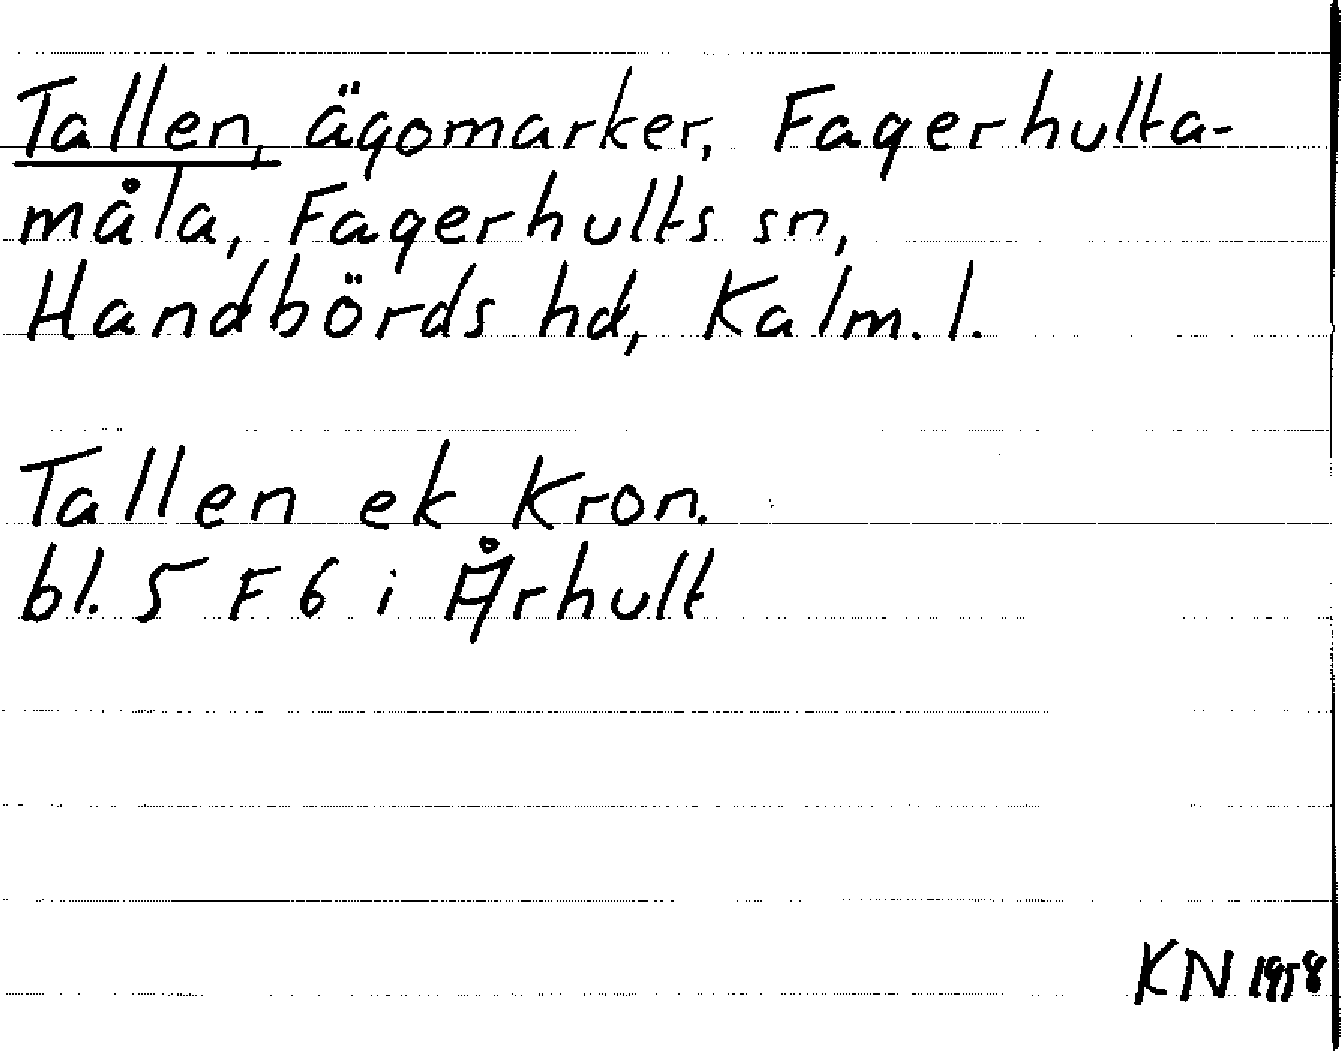 Tallen, ägomarker, Fagerhulta-
måla, Fagerhults sn,
Handbörds hd, Kalm. l.
Tallen ek Kron.
bl. 5 F 6 i Århult
KN 1958